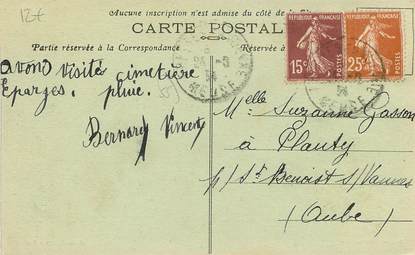 12€
Aucune inscription n'est admise du côté de la
CARTE POSTAL
Partie réservée à la Correspondance
Réservée à
REPUBLIQUE FRANÇAISE
15c
POSTES
REPUBLIQUE FRANÇAISE
25c
POSTES
MEUSE
MEUSE
avons visités cimetière
Eparges. pluie.
Bernard Vincent
Melle Suzanne Gasson
à Planty
p/ St Benoist s/ Vannes
(Aube)